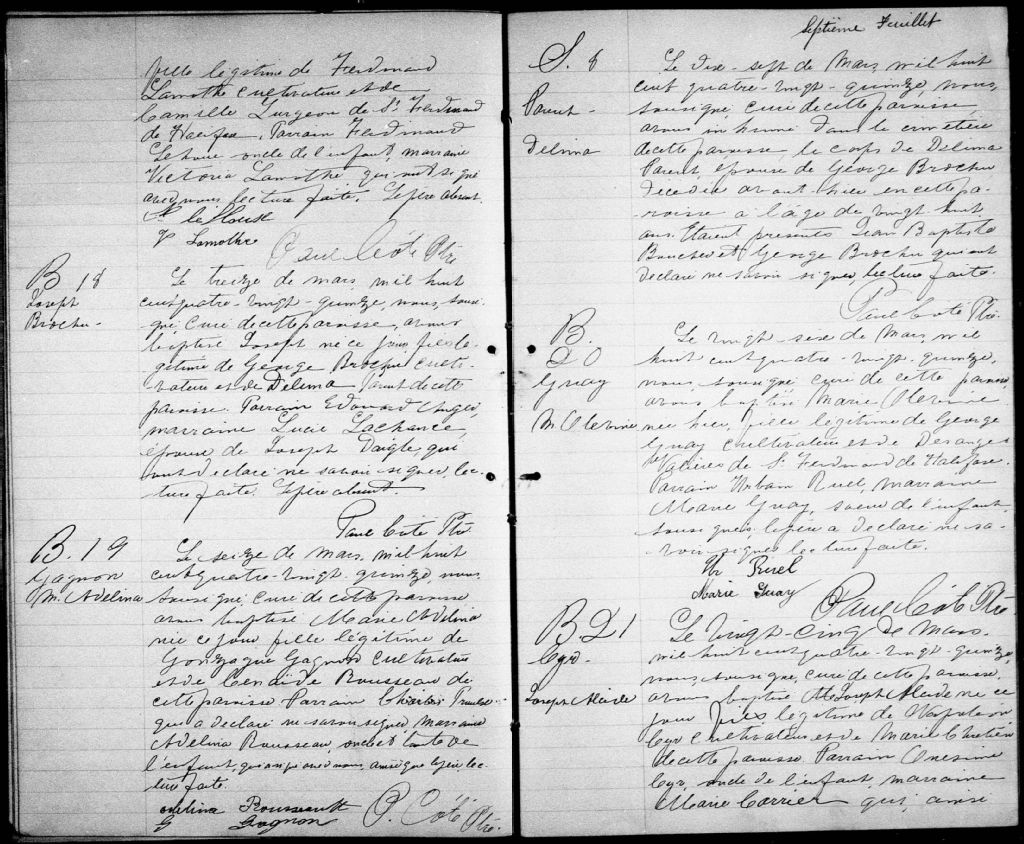 fille légitime de Ferdinand
Lamothe cultivateur et de
Camille Turgeon de St Ferdinand
de Halifax. Parrain Ferdinand
oncle de l'enfant, marraine
Victoria Lamothe qui ont signé
avec nous, lecture faite. Le père absent.
V Lamothe
Paul Côté Ptre
B 18
Joseph
Brochu
Le treize de mars, mil huit
cent quatre-vingt-quinze, nous, sous-
signé, curé de cette paroisse, avons
baptisé Joseph né ce jour fils lé-
gitime de George Brochu culti-
vateur et de Délima Parent de cette
paroisse. Parrain Edouard
marraine Lucie Lachance,
épouse de Joseph Daigle, qui
ont déclaré ne savoir signer, lec-
ture faite. Le père absent.
Paul Côté Ptre
B. 19
Gagnon
M. Adelina
Le seize de mars, mil huit
cent quatre-vingt-quinze, nous,
soussigné, curé de cette paroisse
avons baptisé Marie Adelina
née ce jour fille légitime de
Gonzague Gagnon cultivateur
et de Cénaïde Rousseau de
cette paroisse Parrain Charles
qui a déclaré ne savoir signer marraine
Adelina Rousseau, oncle et tante de
l'enfant, qui a signé avec nous, ainsi que le père, lec-
ture faite
Adelina Rousseault
G Gagnon
P. Côté Ptre.
Septième Feuillet
S. 8
Parent
Délima
Le dix-sept de Mars, mil huit
cent quatre-vingt-quinze, nous,
soussigné, curé de cette paroisse
avons inhumé dans le cimetière
de cette paroisse, le corps de Délima
Parent, épouse de George Brochu
décédée avant-hier en cette pa-
roisse à l'âge de vingt huit
ans. Etaient présents Jean Baptiste
Boucher et George Brochu qui ont
déclaré ne savoir signer, lecture faite.
Paul Côté Ptre
B.
20
Guay
M. Olevine
Le vingt-six de Mars, mil
huit cent quatre-vingt-quinze,
nous, soussigné, curé de cette paroisse
avons baptisé Marie Olevine
née hier, fille légitime de George
Guay cultivateur et de Desanges
Vallières de St Ferdinand de Halifax.
Parrain Urbain Ruel, marraine
Marie Guay, soeur de l'enfant
soussignés, le père a déclaré ne sa-
voir signer lecture faite.
Ur Ruel
Marie Guay
Paul Côté Ptre
B 21
Cyr
Joseph Alcide
Le vingt-cinq de Mars,
mil huit cent quatre-vingt-quinze,
nous, soussigné, curé de cette paroisse,
avons baptisé Joseph Alcide né ce
jour fils légitime de Napoléon
Cyr cultivateur et de Marie Chrétien
de cette paroisse Parrain Onésime
Cyr, oncle de l'enfant, marraine
Marie Carrier qui, ainsi